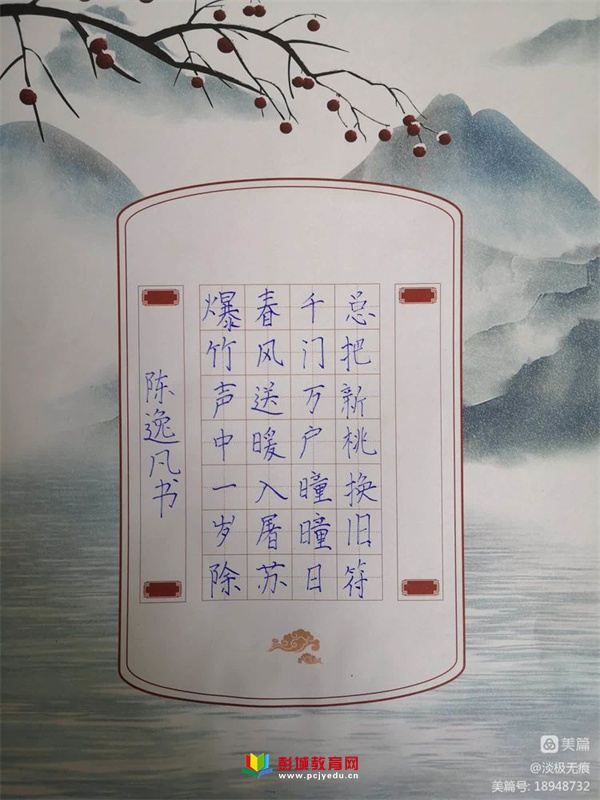 爆竹声中一岁除
春风送暖入屠苏
千门万户瞳瞳日
总把新桃换旧符
陈逸凡书
彭城教育网
www.pcjyedu.cn
美篇
@淡极无痕
美篇号: 18948732